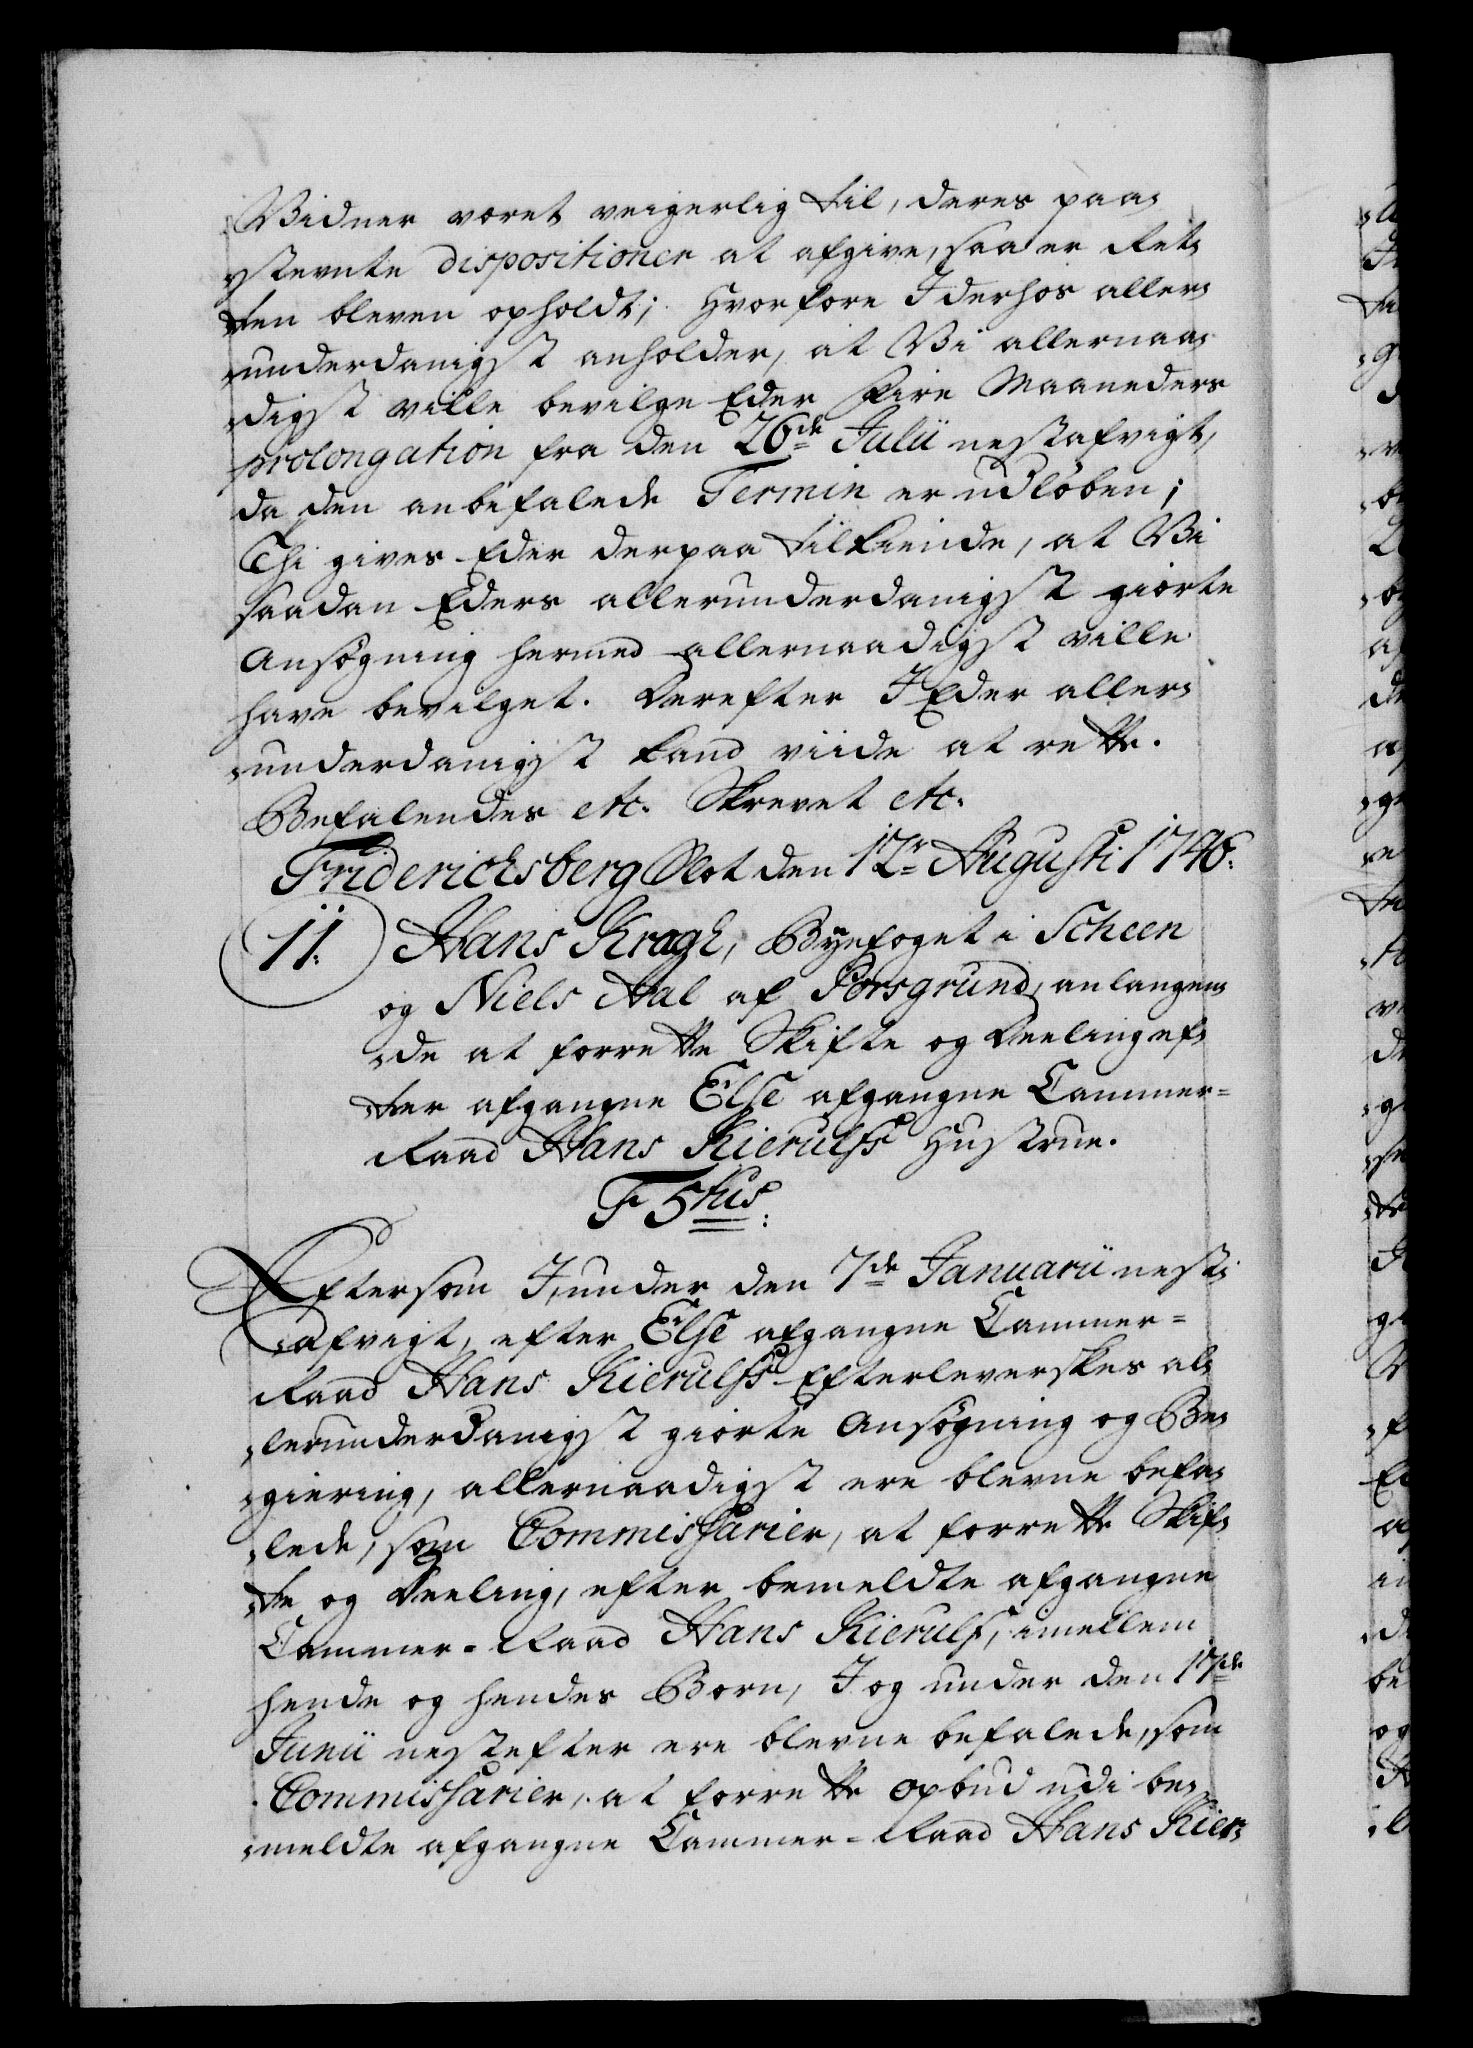 Vidner været veigerlig til, deres paa„
„stevnte dispositioner at afgive, saa er Ret„
„ten bleven opholdt; Hvorfore I derhos aller„
„underdanigst anholder, at Vi allernaa„
„digst ville bevilge Eder Fire Maaneders
prolongation fra den 26de Julii nestafvigt,
da den anbefalede Termin er udløben;
Thi gives Eder derpaa tilkiende, at Vi
saadan Eders allerunderdanigst giorte
Ansøgning hermed allernaadigst ville
have bevilget. Derefter I Eder aller„
„underdanigst kand viide at rette.
Befalendes etc. Skrevet etc.
Friderichsberg Slot den 12te Augusti 1746.
11. Hans Kragh, Byefoget i Scheen
og Niels Aal af Porsgrund, anlangen„
„de at forrette Skifte og Deeling ef„
„ter afgangne Else afgangne Cammer=
Raad Hans Kierulfs Hustrue.
F 5tus.
Eftersom I, under den 7de Januarii nest„
„afvigt, efter Else afgangne Cammer=
Raad Hans Kierulfs Efterleverskes al„
„lerunderdanigst giorte Ansøgning og Be„
„giering, allernaadigst ere blevne befa„
„lede, som Commissarier, at forrette Skif„
„te og Deeling, efter bemeldte afgangne
Cammer=Raad Hans Kierulf, imellem
hende og hendes Børn, I og under den 17de
Junii nestefter ere blevne befalede, som
Commissarier, at forrette Opbud udi be„
„meldte afgangne Cammer=Raad Hans Kier„